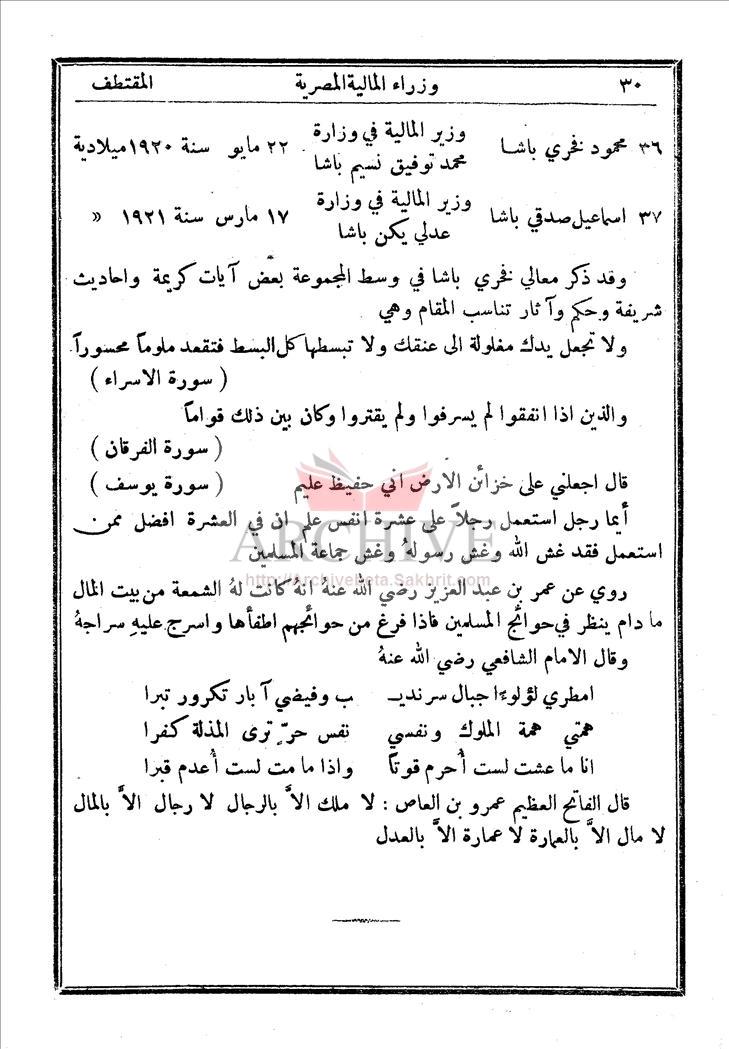 ٣٠ وزراء المالية المصرية المقتطف
٣٦ محمود فخري باشا وزير المالية في وزارة محمد توفيق نسيم باشا ٢٢ مايو سنة ١٩٢٠ ميلادية
٣٧ اسماعيل صدقي باشا وزير المالية في وزارة عدلي يكن باشا ١٧ مارس سنة ١٩٢١ »
وقد ذكر معالي فخري باشا في وسط المجموعة بعض آيات كريمة واحاديث
شريفة وحكم وآثار تناسب المقام وهي
ولا تجعل يدك مغلولة الى عنقك ولا تبسطها كل البسط فتقعد ملوماً محسوراً.
( سورة الاسراء )
والذين اذا انفقوا لم يسرفوا ولم يقتروا وكان بين ذلك قواماً
( سورة الفرقان )
قال اجعلني على خزائن الارض اني حفيظ عليم ( سورة يوسف )
أيما رجل استعمل رجلاً على عشرة انفس علم ان في العشرة افضل ممن
استعمل فقد غش الله وغش رسولهُ وغش جماعة المسلمين
ARCHIVE
http://Archivebeta.Sakhrit.com
روي عن عمر بن عبد العزيز رضي الله عنهُ انهُ كانت لهُ الشمعة من بيت المال
ما دام ينظر في حوائج المسلمين فاذا فرغ من حوائجهم اطفأها واسرج عليهِ سراجهُ
وقال الامام الشافعي رضي الله عنهُ
امطري لؤلوءًا جبال سرنديـ ـب وفيضي آبار تكرور تبرا
همتي همة الملوك ونفسي نفس حرّ ترى المذلة كفرا
انا ما عشت لست أُحرم قوتاً واذا ما مت لست أُعدم قبرا
قال الفاتح العظيم عمرو بن العاص : لا ملك الاَّ بالرجال لا رجال الاَّ بالمال
لا مال الاَّ بالعمارة لا عمارة الاَّ بالعدل